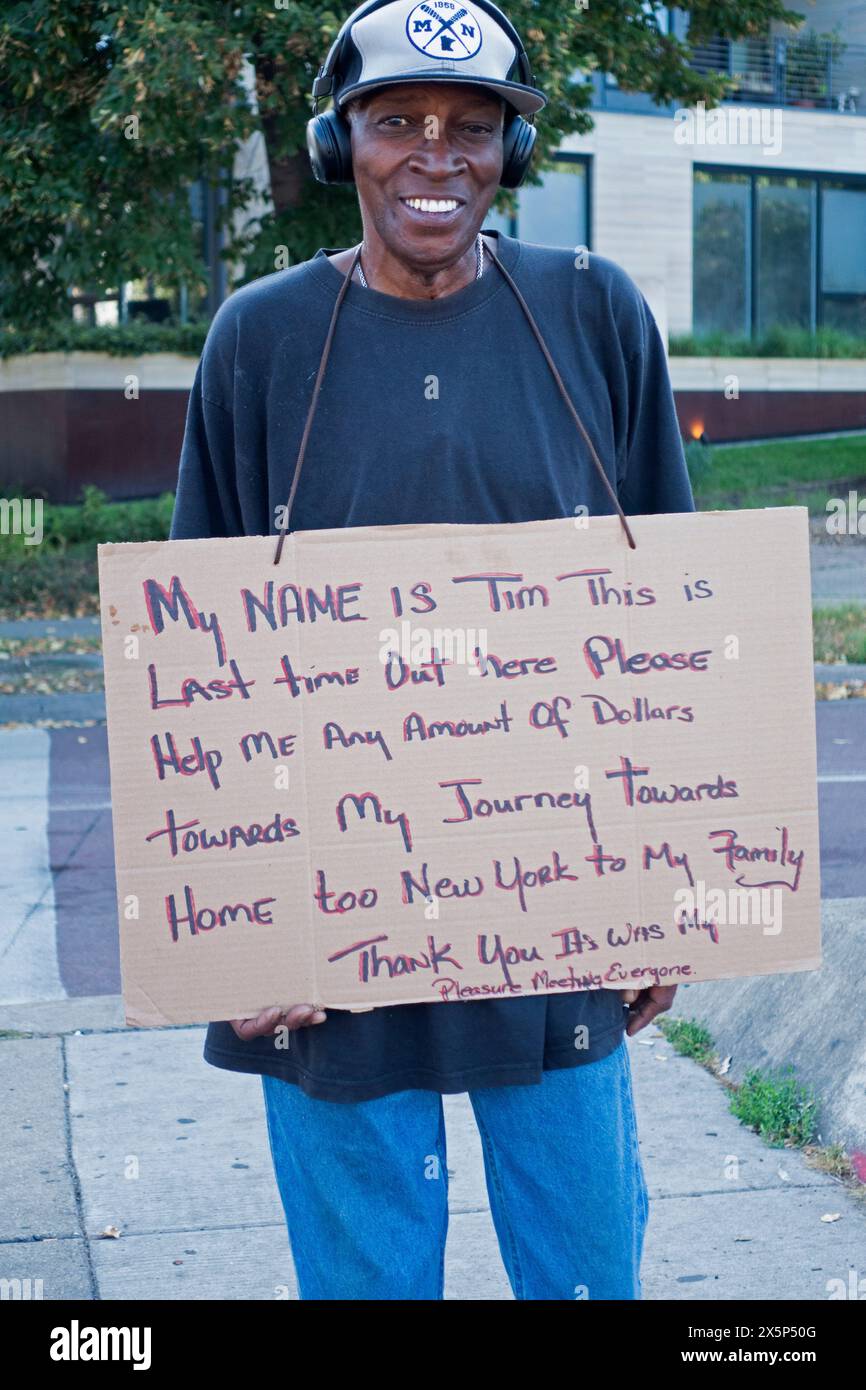 1858
M N
My NAME is Tim This is
Last time Out here Please
Help Me Any Amount Of Dollars
towards My Journey Towards
Home too New York to My Family
Thank You Its was My
Pleasure Meeting Everyone.
alamy
Image ID: 2X5P50G
www.alamy.com